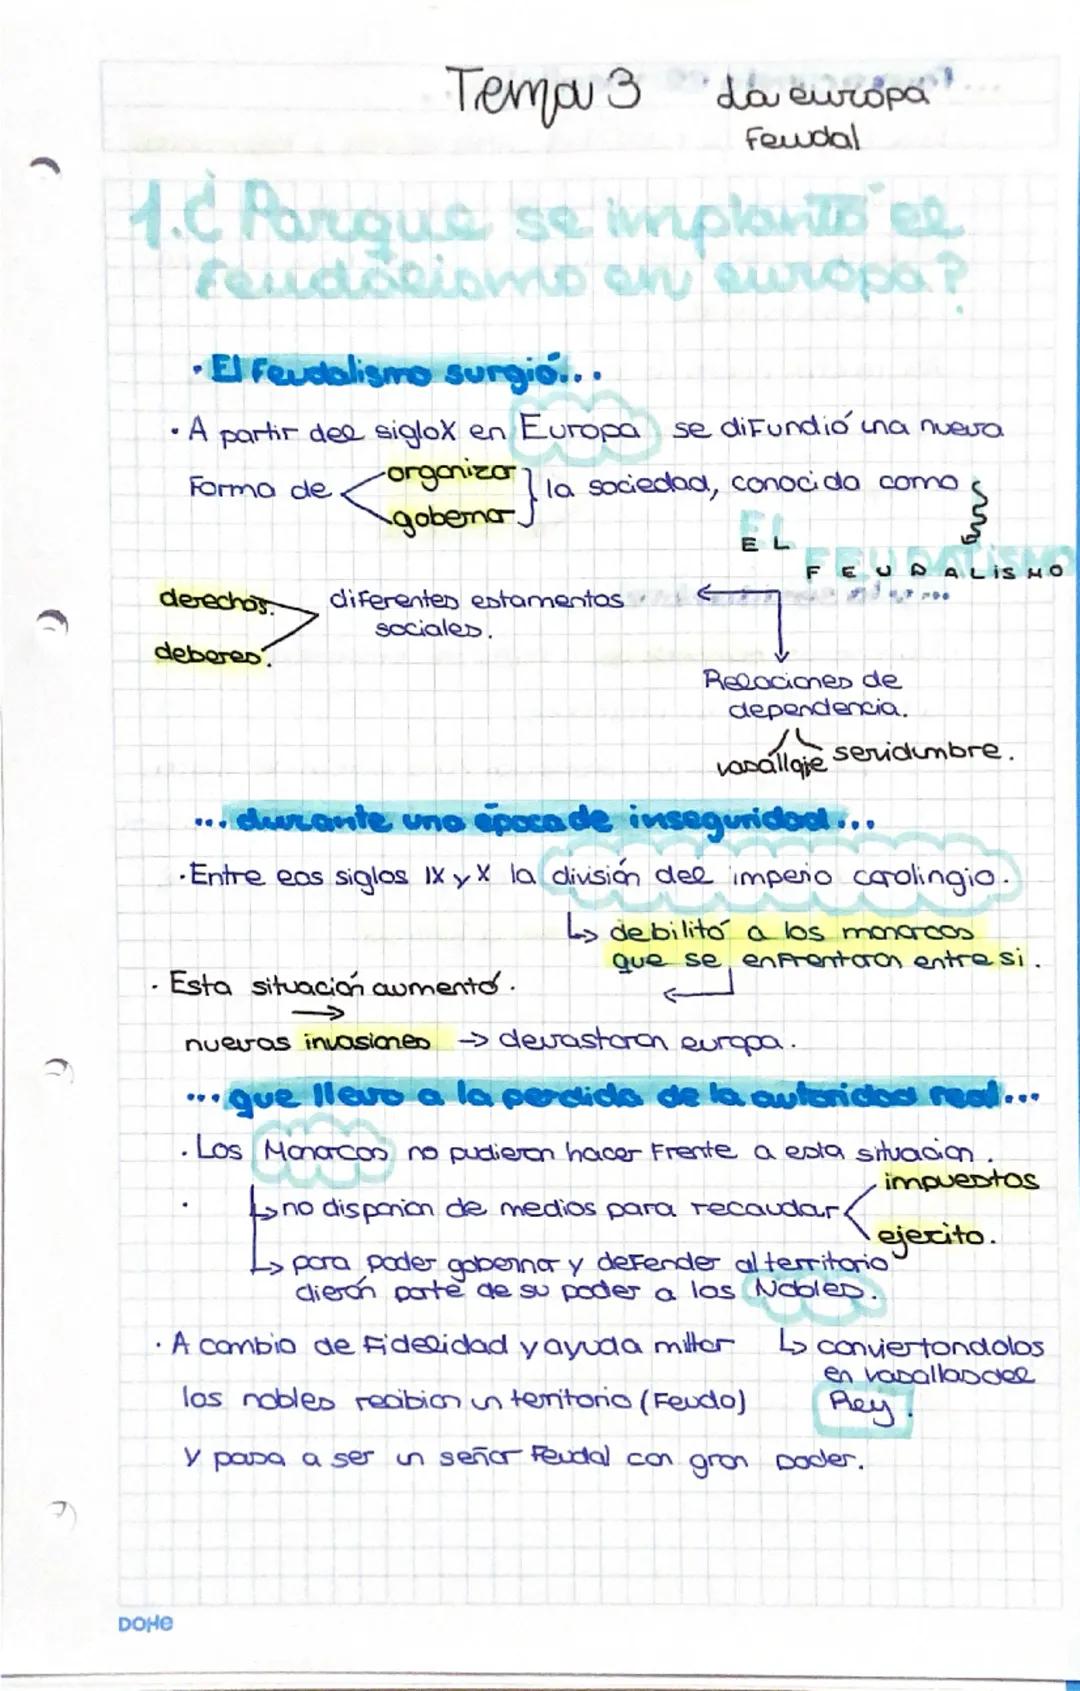 Tema 3 La europa
Feudal
1.¿ Porque se implantó el
Feudalismo en europa?
· El Feudalismo surgió...
· A partir del siglo X en Europa se difundió una nueva
Forma de organizar la sociedad, conocida como
gobernar
EL
FEUDALISMO
derechos. diferentes estamentos
sociales.
deberes.
Relaciones de
dependencia.
vasallaje servidumbre.
... durante una época de inseguridad...
· Entre los siglos IX y X la división del imperio carolingio.
↳ debilitó a los monarcas
que se enfrentaron entre si.
· Esta situación aumentó.
→
nuevas invasiones → devastaron europa.
... que llevo a la perdida de la autoridad real...
· Los Monarcas no pudieron hacer Frente a esta situación.
impuestos
· ↳ no disponian de medios para recaudar
ejercito.
↳ para poder gobernar y defender al territorio
dierón parte de su poder a los Nobles.
· A cambio de Fidelidad y ayuda militar ↳ conviertondolos
en vasallos del
los nobles recibian un territorio (Feudo) Rey.
y pasa a ser un señor Feudal con gran poder.
DOHe